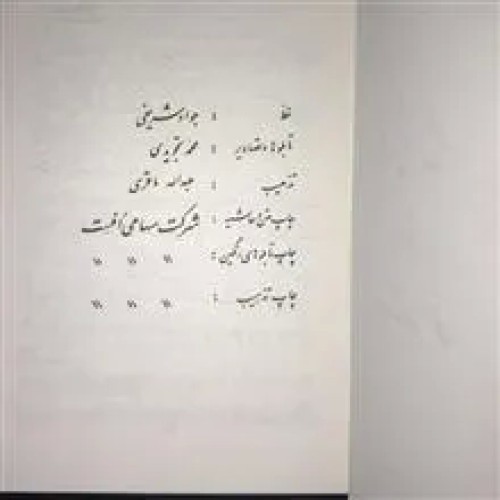 خط : جواد شریفی
تابلوها و تصاویر : محمد تجویدی
تذهیب : عبدالله باقری
چاپ متن و حاشیه : شرکت سهامی افست
چاپ تابلوهای رنگین : " " "
چاپ تذهیب : " " "